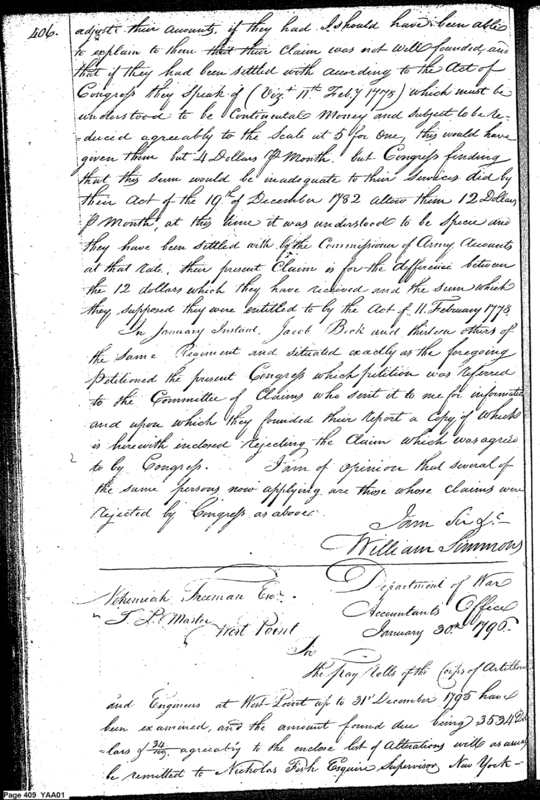 406.
adjust their amounts, if they had I should have been able
to explain to them that their Claim was not well founded, and
that if they had been settled with according to the Act of
Congress they speak of (Vizt. 11th Feby 1778) which must be
understood to be Continental Money and subject to be re-
-duced agreeably to the Scale at 5 for one, this would have
given them but 4 Dollars P Month. but Congress finding
that this sum would be inadequate to their services did by
their Act of the 19th of December 1782 allow them 12 Dollars
P Month, at this time it was understood to be Specie and
they have been settled with by the Commissioner of Army Accounts
at that rate, their present Claim is for the difference between
the 12 dollars which they have received and the sum which
they supposed they were entitled to by the Act of 11. February 1778
In January Instant, Jacob Beck and thirteen others of
the same Regiment and situated exactly as the foregoing
Petitioned the present Congress which petition was referred
to the Committee of Claims who sent it to me for information
and upon which they founded their Report a Copy of which
is herewith inclosed rejecting the Claim which was agreed
to by Congress. I am of opinion that several of
the same persons now applying are those whose claims were
rejected by Congress as above.
I am Sir &c
William Simmons
Department of War
Nehemiah Freeman Esqr.
Accountants Office
T. P. Master
West Point
January 30th 1796
Sir
The Pay Rolls of the Corps of Artillerists
and Engineers at West-Point up to 31st December 1795 have
been examined, and the amount found due being 3534 Dol
-lars & 34/100 agreeably to the enclose list of Alterations will as usual
be remitted to Nicholas Fish Esquire Supervisor New York-
Page 409 YAA01